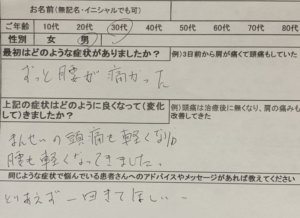 お名前(無記名・イニシャルでも可)
ご年齢 10代 20代 30代 40代 50代 60代 70代 80代
性別 女 男
最初はどのような症状がありましたか? 例)3日前から肩が痛くて頭痛もしていた
ずっと腰が痛かった
上記の症状はどのように良くなって(変化して)きましたか? 例)頭痛は治療後に無くなり、肩の痛みも改善してきた
まんせいの頭痛も軽くなり
腰も軽くなってきました.
同じような症状で悩んでいる患者さんへのアドバイスやメッセージがあれば教えてください
とりあえず一回きてほしい